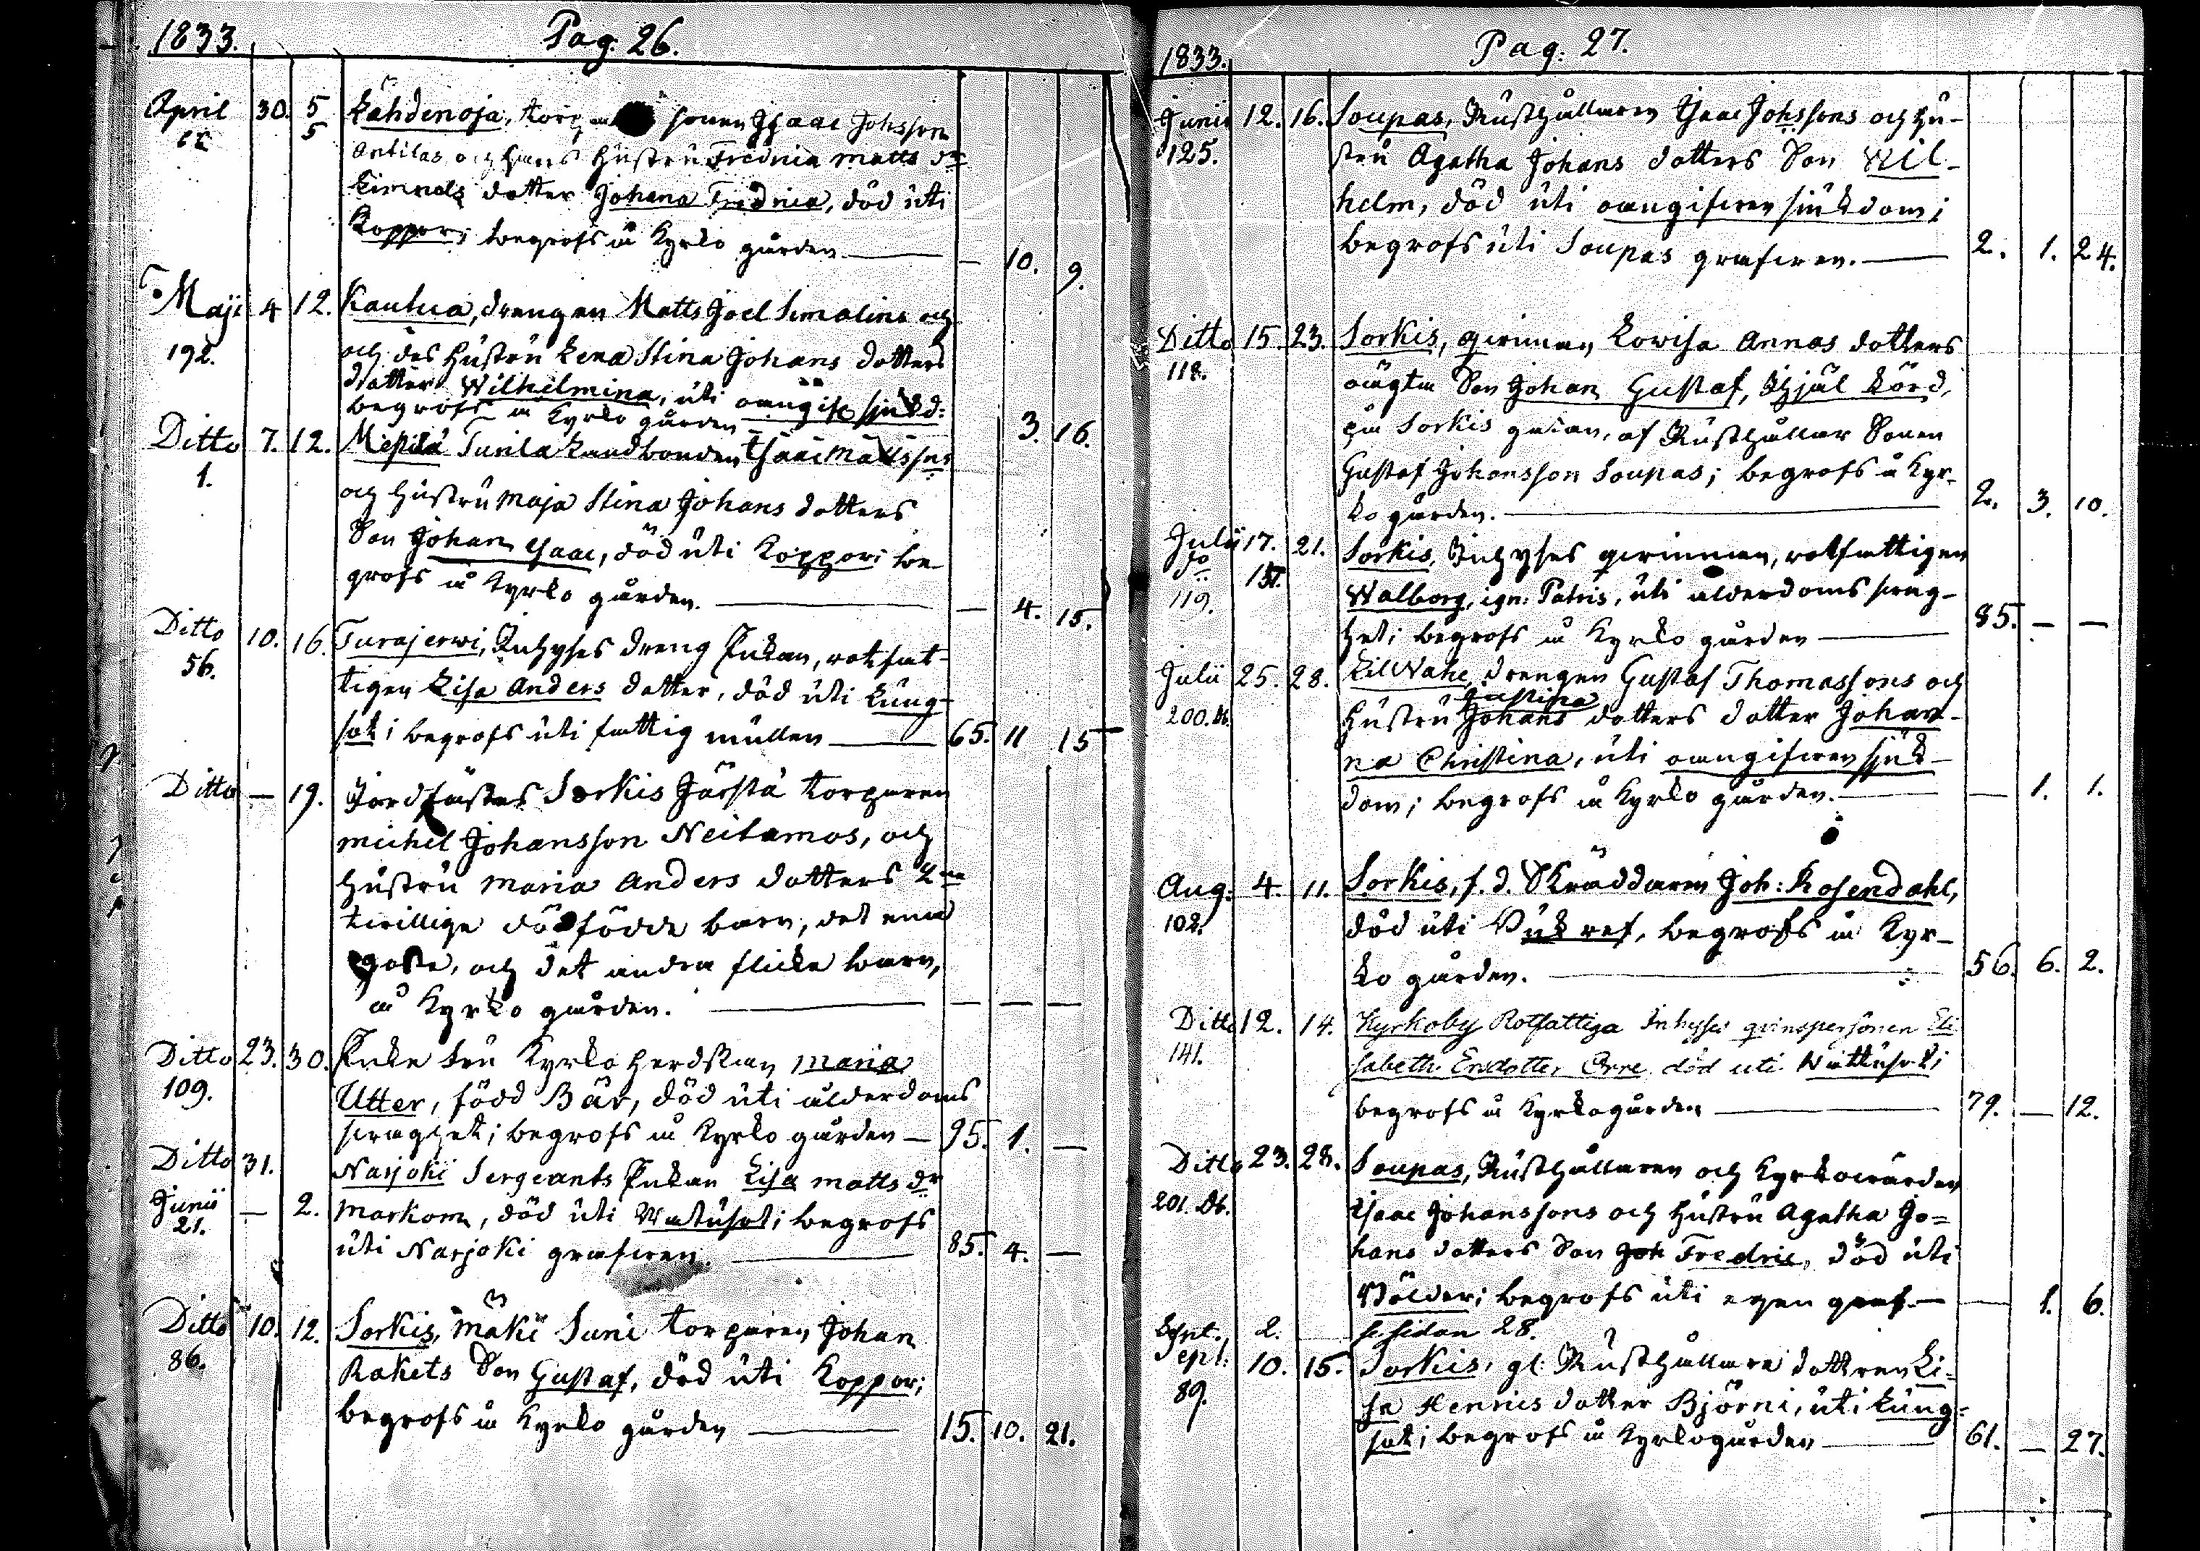 1833. Pag. 26.
April 30. 5/5 Lähdenoja, Torp sonen Isaac Johsson
Antilas och hans Hustru Fredrica Matts dr
dotter Johana Fredrica, död uti
Koppor; begrofs å Kyrko gården — — 10. 9.
Maji 4 12. Kautua, drengen Matts Joel Simolins och
192. och des Hustru Lena Stina Johans dotters
dotter Wilhelmina, uti oangifv sjukd:
begrofs å Kyrko gården — 3. 16.
Ditto 7. 12. Mepilä Tunila Landbonden Isaac Matssons
1. och Hustru Maja Stina Johans dotters
Son Johan Isaac, död uti Koppor; be-
grofs å Kyrko gården. — — 4. 15.
Ditto 10. 16. Turajerwi, Inhyses dreng Enkan, rotfat-
56. tigen Lisa Anders dotter, död uti Lung-
sot; begrofs uti fattig mullen — 65. 11 15
Ditto — 19. Jordfästes Sorkis Järstä torparen
Michel Johansson Neitamos, och
Hustru Maria Anders dotters 2ne
tvillige dödfödde barn, det ena
gosse, och det andra flicke barn,
å Kyrko gården. — — — —
Ditto 23. 30. Enke fru Kyrko herdskan Maria
109. Utter, född Bär, död uti ålderdoms
svaghet; begrofs å Kyrko gården — 95. 1. —
Ditto 31. Narjoki Sergeants Enkan Lisa Matts dr
Junii — 2. Markom, död uti Watusot; begrofs
21. uti Narjoki grafven. — 85. 4. —
Ditto 10. 12. Sorkis, Mäki Suni torparen Johan
86. Rakets Son Gustaf, död uti Koppor;
begrofs å Kyrko gården — 15. 10. 21.
1833. Pag. 27.
Junii 12. 16. Soupas, Rusthållaren Isaac Johssons och Hu-
125. stru Agatha Johans dotters Son Wil-
helm, död uti oangifven sjukdom;
begrofs uti Soupas grafven. — 2. 1. 24.
Ditto 15. 23. Sorkis, qvinnan Lowisa Annas dotters
118. oägta Son Johan Gustaf, Ihjäl körd,
på Sorkis gatan, af Rusthållar Sonen
Gustaf Johansson Soupas; begrofs å Kyr-
ko gården. — 2. 3. 10.
Julii 17. 21. Sorkis, Inhyses qvinnan, rotfattigen
do Walborg, ign: Patris, uti ålderdoms svag-
119. het; begrofs å Kyrko gården — 85. — —
Julii 25. 28. LilNahe, drengen Gustaf Thomassons och
Justina
200. Hustru Johans dotters dotter Johan-
na Christina, uti oangifven sjuk-
dom; begrofs å Kyrko gården. — — 1. 1.
Aug. 4. 11. Sorkis, f. d. Skräddaren Joh: Rosendahl,
102. död uti begrofs å Kyr-
ko gården. — 56. 6. 2.
Ditto 12. 14. Kyrkoby Rotfattiga Inhyses qvinspersonen Eli
141. sabeth Ersdotter Orre död uti Wattusot;
begrofs å Kyrkogården — 79. — 12.
Ditto 23. 28. Soupas, Rusthållaren och Kyrkowärden
201. Isaac Johanssons och Hustru Agatha Jo=
hans dotters Son Joh Fredric, död uti
Bölder; begrofs uti egen graf. — — 1. 6.
Sept. 2. se sidan 28.
Sept: 10. 15. Sorkis, gl: Rusthållare dottren Li=
89. sa Hennics dotter Björni, uti Lung=
sot; begrofs å Kyrkogården — 61. — 27.